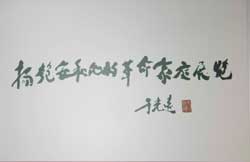 杨匏安和他的革命家庭展览
于光远